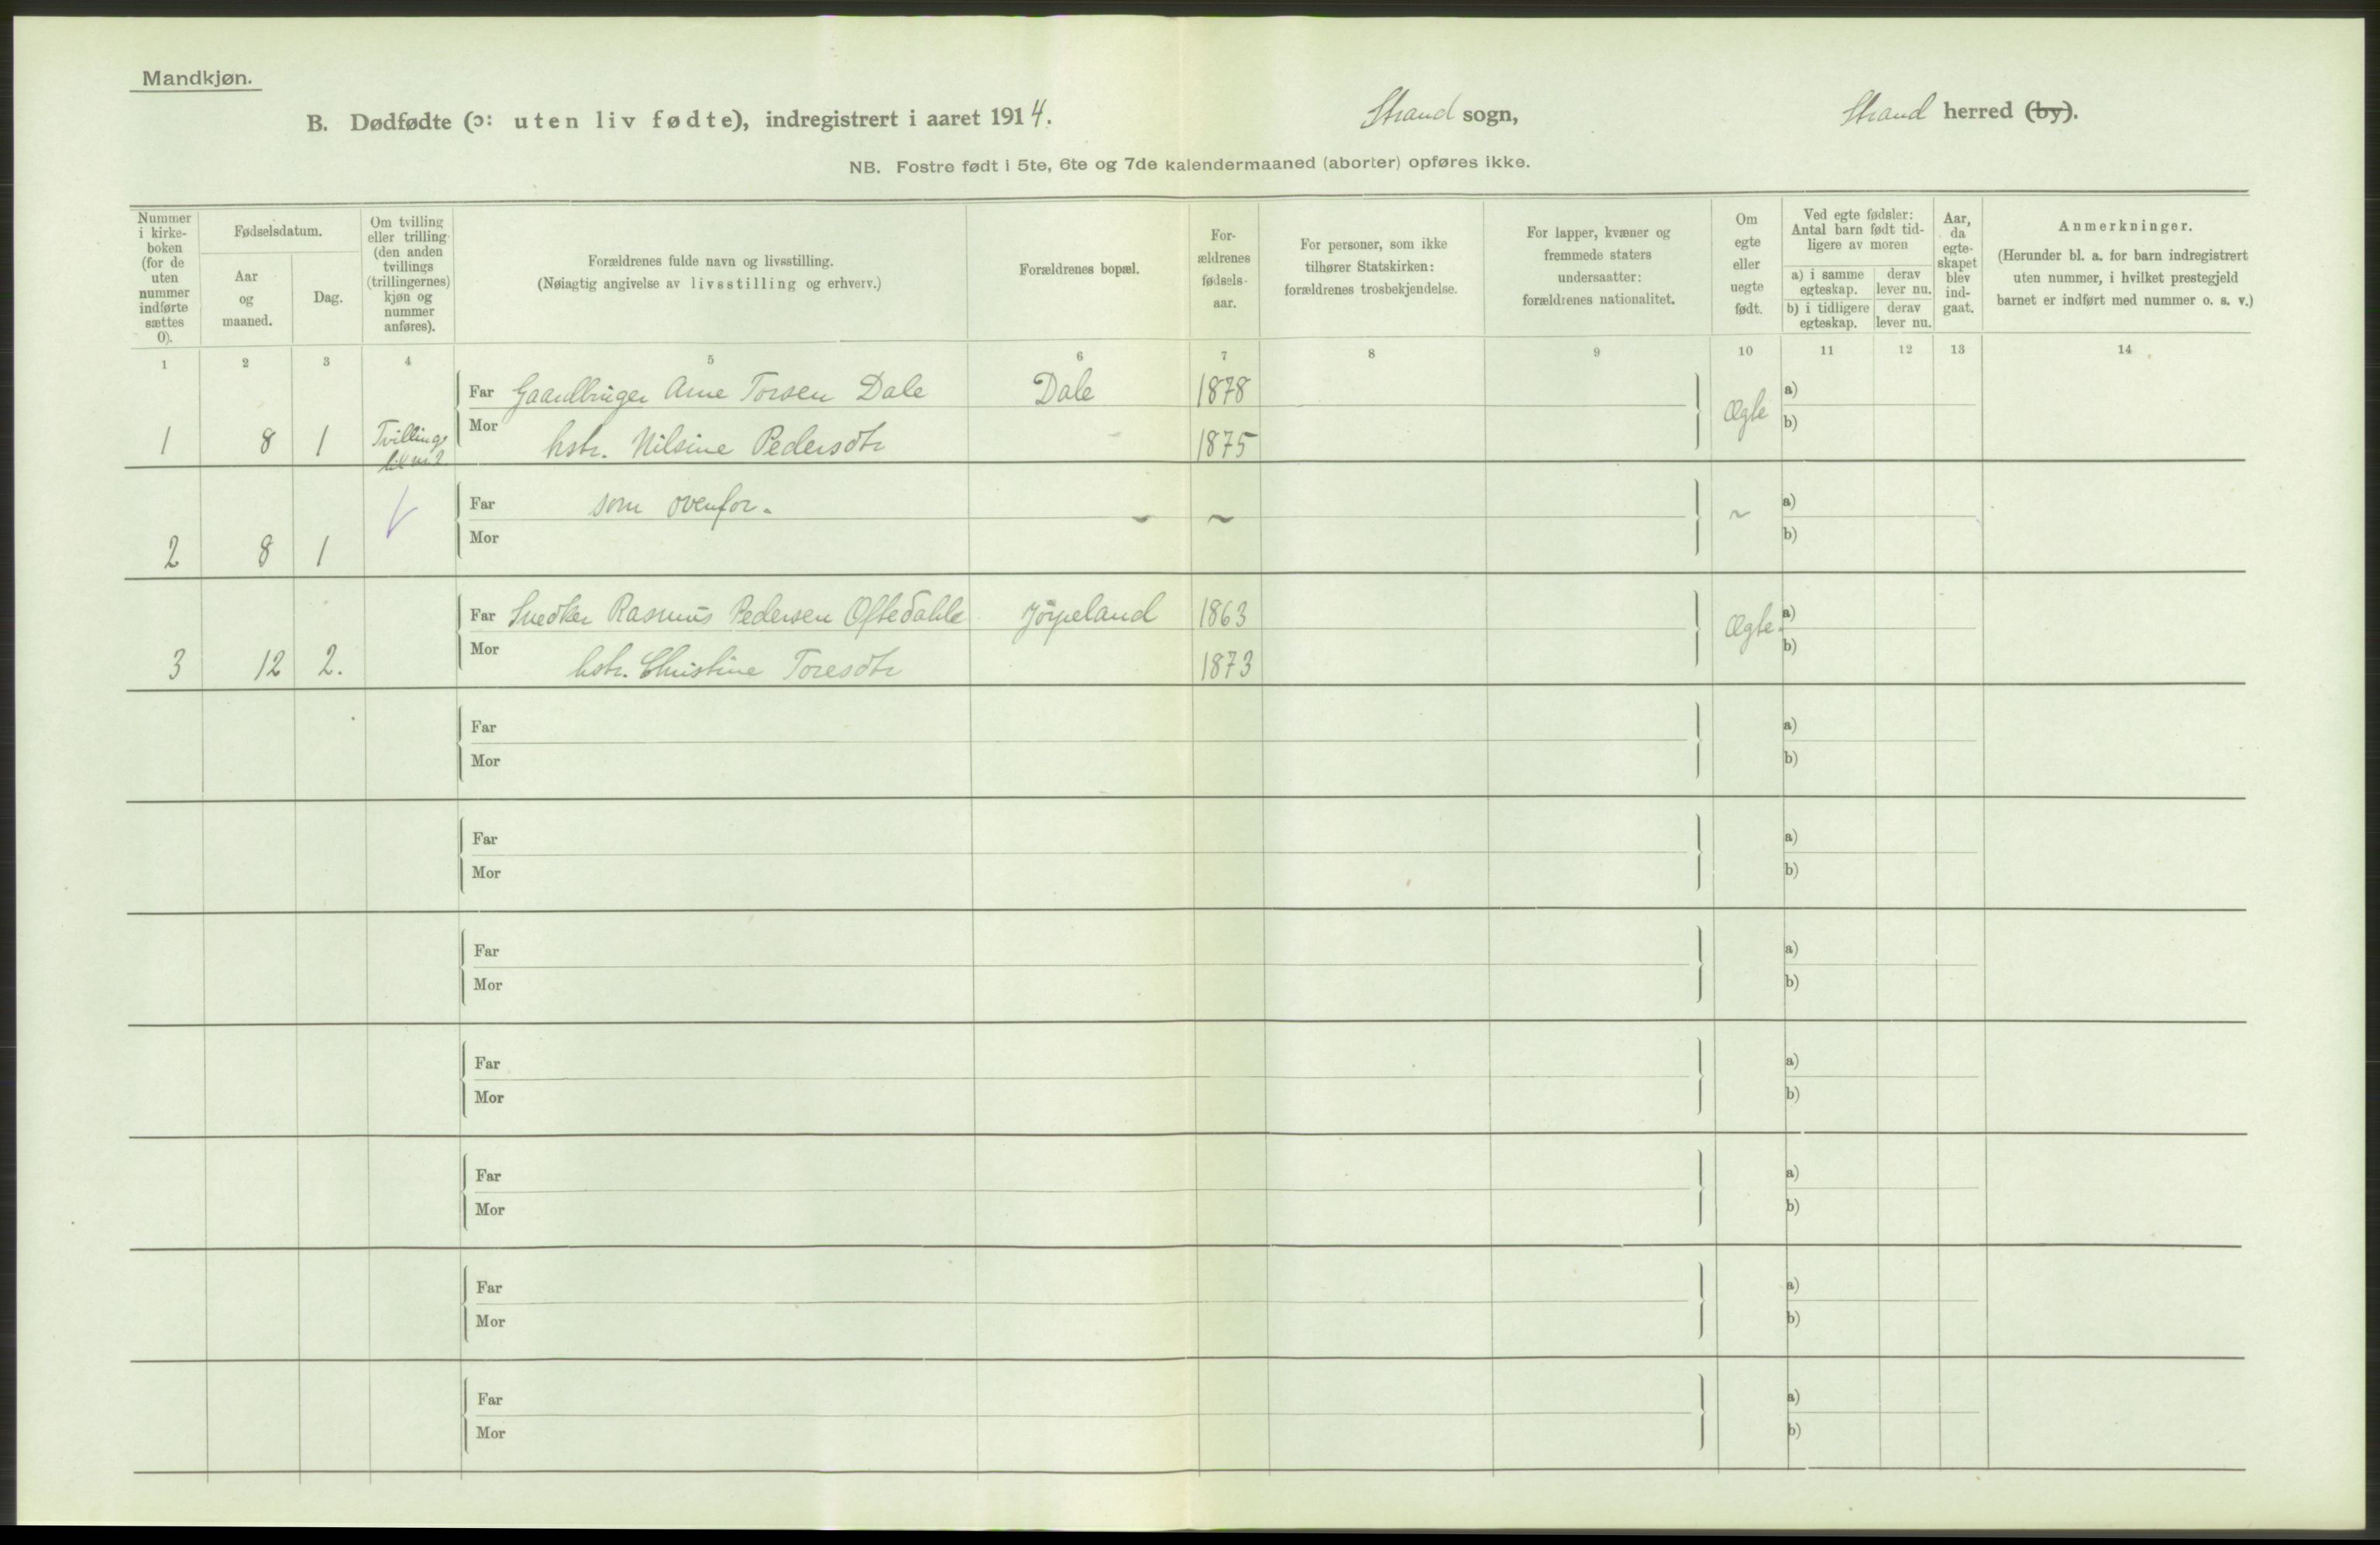 Mandkjøn.
B. Dødfødte (ɔ: uten liv fødte), indregistrert i aaret 1914. Strand sogn, Strand herred (by).
NB. Fostre født i 5te, 6te og 7de kalendermaaned (aborter) opføres ikke.
Nummer i kirke-boken (for de uten nummer indførte sættes 0).
Fødselsdatum.
Aar og maaned.
Dag.
Om tvilling eller trilling (den anden tvillings (trillingernes) kjøn og nummer anføres).
Forældrenes fulde navn og livsstilling.
(Nøiagtig angivelse av livsstilling og erhverv.)
Forældrenes bopæl.
For-ældrenes fødsels-aar.
For personer, som ikke tilhører Statskirken: forældrenes trosbekjendelse.
For lapper, kvæner og fremmede staters undersaatter: forældrenes nationalitet.
Om egte eller uegte født.
Ved egte fødsler: Antal barn født tid-ligere av moren
a) i samme egteskap. derav lever nu.
b) i tidligere egteskap. derav lever nu.
Aar, da egte-skapet blev ind-gaat.
Anmerkninger.
(Herunder bl. a. for barn indregistrert uten nummer, i hvilket prestegjeld barnet er indført med nummer o. s. v.)
1 2 3 4 5 6 7 8 9 10 11 12 13 14
Far Gaardbruger Arne Torsen Dale Dale 1878 Ægte a)
1 8 1 Tvilling Mor hstr. Nilsine Pedersdtr 1875 b)
Far som ovenfor. ~ ~ ~ a)
2 8 1 Mor b)
Far Snedker Rasmus Pedersen Oftedahl Jörpeland 1863 Ægte. a)
3 12 2. Mor hstr. Christine Toresdtr 1873 b)
Far a)
Mor b)
Far a)
Mor b)
Far a)
Mor b)
Far a)
Mor b)
Far a)
Mor b)
Far a)
Mor b)
Far a)
Mor b)